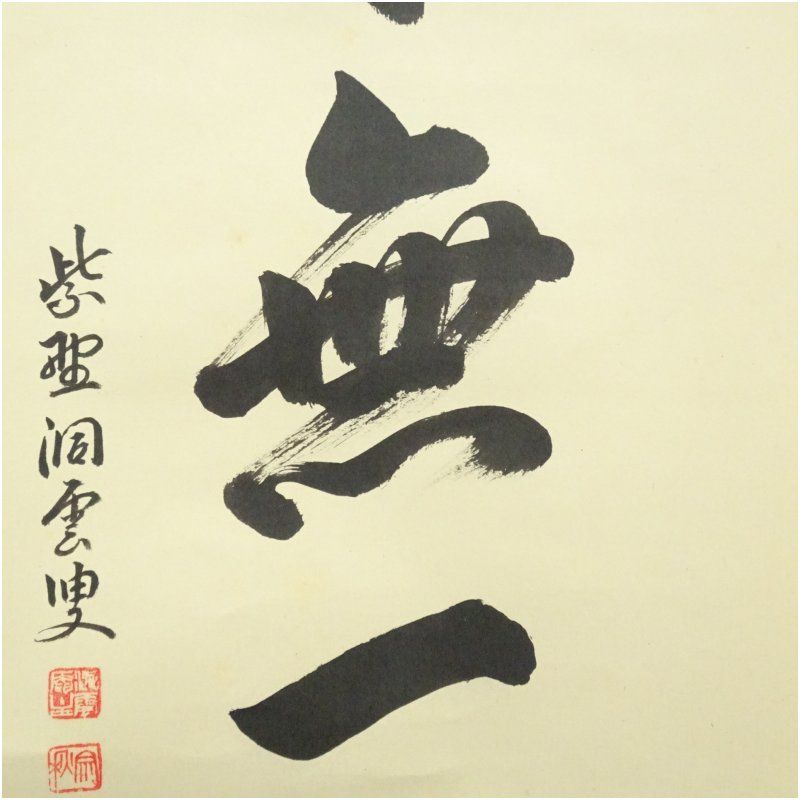 無一
紫野洞雲叟